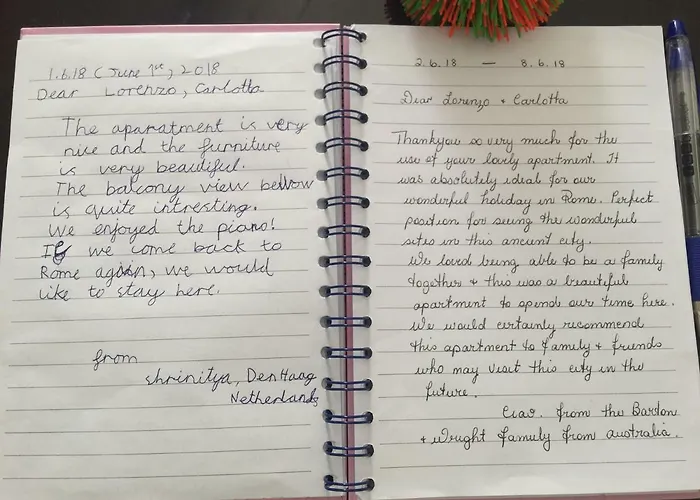 1.6.18 (June 1st, 2018
Dear Lorenzo, Carlotta
The aparatment is very
nice and the furniture
is very beautiful.
The balcony view bellow
is quite intresting.
We enjoyed the piano!
If we come back to
Rome again, we would
like to stay here.
from
shrinitya, Den Haag
Netherlands
2.6.18 — 8.6.18
Dear Lorenzo + Carlotta
Thankyou so very much for the
use of your lovely apartment. It
was absolutely ideal for our
wonderful holiday in Rome. Perfect
position for seeing the wonderful
sites in this ancient city.
We loved being able to be a family
together + this was a beautiful
apartment to spend our time here.
We would certainly recommend
this apartment to family + friends
who may visit this city in the
future.
Ciao. from the Barton
+ Wright family from australia.